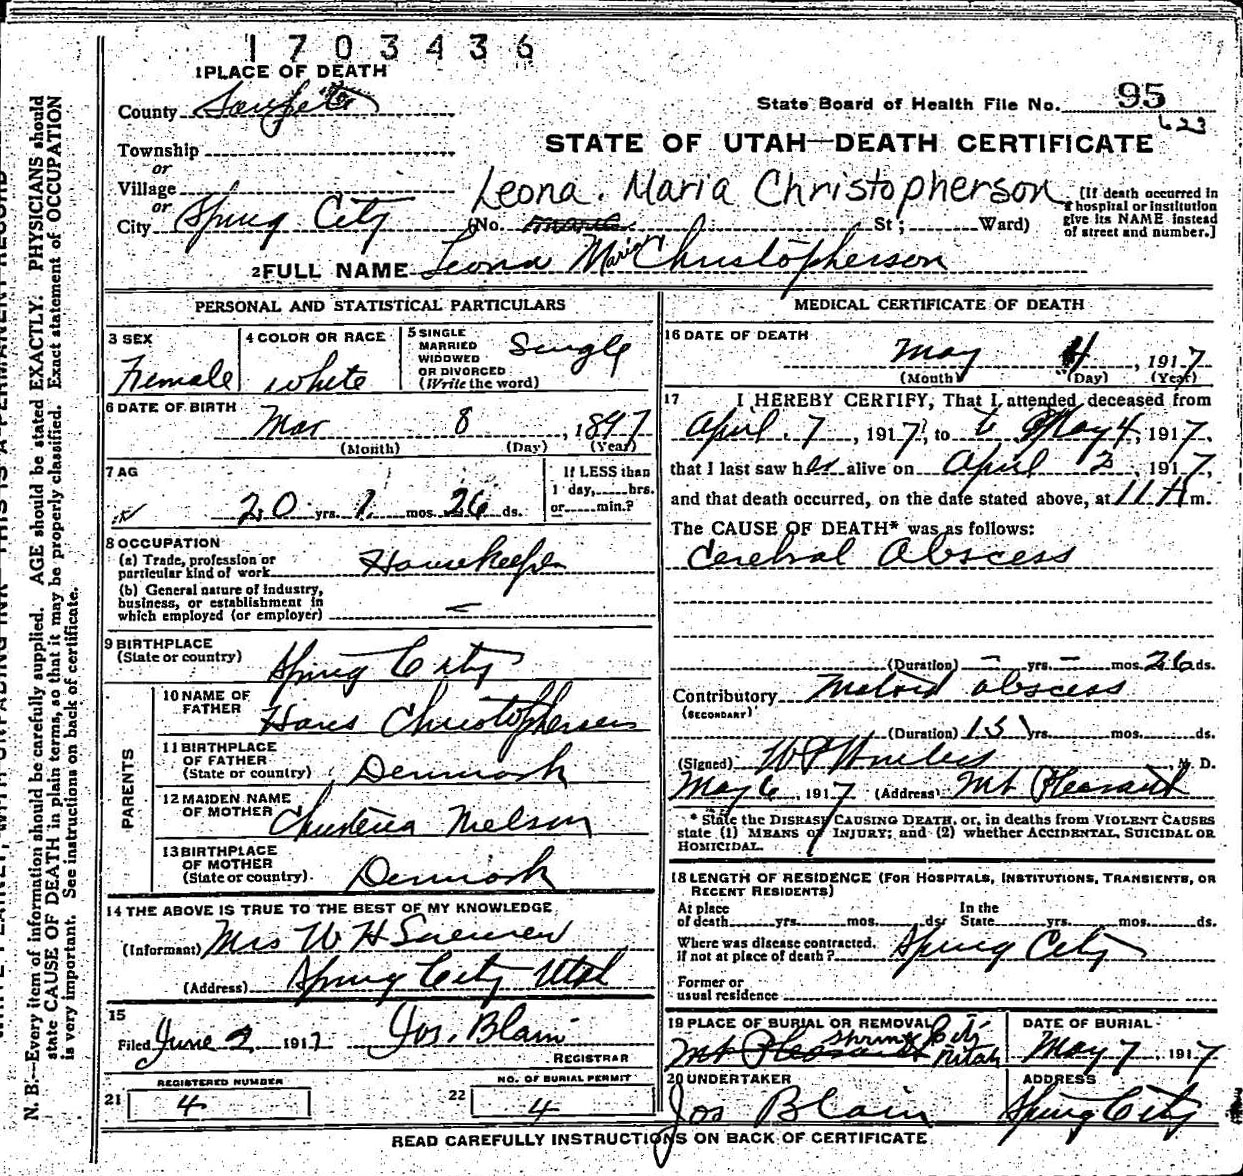 1703436
1 PLACE OF DEATH
County Sanpete
State Board of Health File No. 95
623
STATE OF UTAH—DEATH CERTIFICATE
Township
or
Village
or
City Spring City
Leona. Maria Christopherson
(No. St; Ward)
[If death occurred in
a hospital or institution
give its NAME instead
of street and number.]
2 FULL NAME Leona Maria Christopherson
PERSONAL AND STATISTICAL PARTICULARS
3 SEX
Female
4 COLOR OR RACE
white
5 SINGLE
MARRIED
WIDOWED
OR DIVORCED
(Write the word)
Single
6 DATE OF BIRTH
Mar 8, 1897
(Month) (Day) (Year)
7 AG
20 yrs. 1 mos. 26 ds.
If LESS than
1 day, hrs.
or min.?
8 OCCUPATION
(a) Trade, profession or
particular kind of work Housekeeper
(b) General nature of industry,
business, or establishment in
which employed (or employer)
9 BIRTHPLACE
(State or country) Spring City
PARENTS
10 NAME OF
FATHER
Hans Christophersen
11 BIRTHPLACE
OF FATHER
(State or country) Denmark
12 MAIDEN NAME
OF MOTHER
Christena Nielson
13 BIRTHPLACE
OF MOTHER
(State or country). Denmark
14 THE ABOVE IS TRUE TO THE BEST OF MY KNOWLEDGE
(Informant) Mrs W H
(Address) Spring City Utah
15
Filed June 2 1917 Jos. Blain
REGISTRAR
REGISTERED NUMBER
21 4
NO. OF BURIAL PERMIT
22 4
MEDICAL CERTIFICATE OF DEATH
16 DATE OF DEATH
May 4, 1917
(Month) (Day) (Year)
17 I HEREBY CERTIFY, That I attended deceased from
April. 7, 1917, to to May 4, 1917,
that I last saw her alive on April 2, 1917,
and that death occurred, on the date stated above, at 11 A m.
The CAUSE OF DEATH* was as follows:
Cerebral Abscess
(Duration) – yrs. – mos. 26 ds.
Contributory Mastoid abscess
(SECONDARY)
(Duration) 15 yrs. mos. ds.
(Signed) M. D.
May 6, 1917 (Address) Mt Pleasant
* State the DISEASE CAUSING DEATH, or, in deaths from VIOLENT CAUSES
state (1) MEANS OF INJURY; and (2) whether ACCIDENTAL, SUICIDAL OR
HOMICIDAL.
18 LENGTH OF RESIDENCE (FOR HOSPITALS, INSTITUTIONS, TRANSIENTS, OR
RECENT RESIDENTS)
At place
of death yrs. mos. ds.
In the
State yrs. mos. ds.
Where was disease contracted.
if not at place of death? Spring City
Former or
usual residence
19 PLACE OF BURIAL OR REMOVAL
Spring City
Mt Pleasant Utah
DATE OF BURIAL
May 7, 1917
20 UNDERTAKER
Jos Blain
ADDRESS
Spring City
READ CAREFULLY INSTRUCTIONS ON BACK OF CERTIFICATE
N. B.—Every item of information should be carefully supplied. AGE should be stated EXACTLY. PHYSICIANS should
state CAUSE OF DEATH in plain terms, so that it may be properly classified. Exact statement of OCCUPATION
is very important. See instructions on back of certificate.